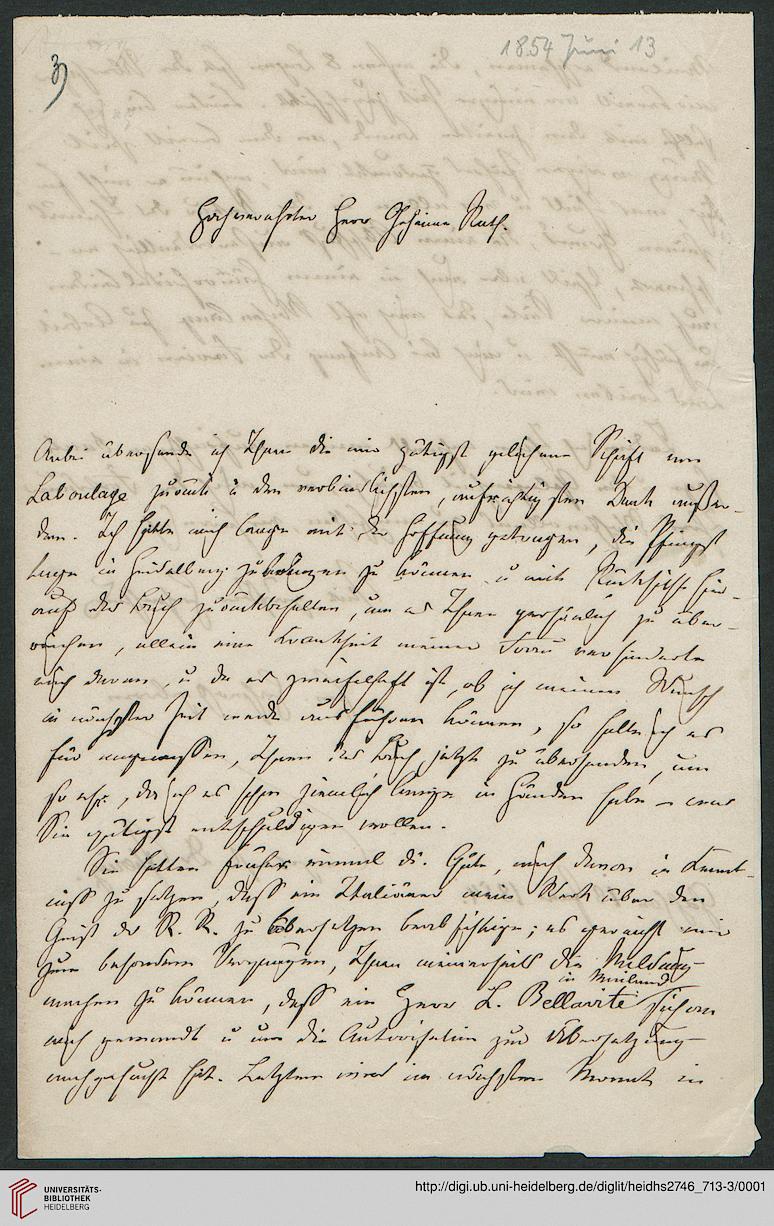 1854 Juni 13
3)
Hochverehrter Herr Geheime Rath.
Anbei übersende ich Ihnen die mir gütigst geliehene Schrift von
Laboulaye zurück u den verbindlichsten, aufrichtigsten Dank außer-
dem. Ich hatte mich lange mit der Hoffnung getragen, die Pfingst
tage in Heidelberg zubringen zu können u mit Rücksicht hier-
auf das Buch zurückbehalten, um es Ihnen persönlich zu über-
reichen, allein eine Krankheit meiner Frau verhinderte
mich daran, u da es zweifelhaft ist, ob ich meinen Wunsch
in nächster Zeit werde ausführen können, so halte ich es
für angemessen, Ihnen das Buch jetzt zu übersenden, um
so ehr, da ich es schon ziemlich lange in Händen habe – was
Sie gütigst entschuldigen wollen.
Sie hatten früher einmal die Güte, mich davon in Kennt-
niß zu setzen, daß ein Italiäner mein Werk über den
Geist des R. R. zu übersetzen beabsichtige; es gereicht mir
zum besondern Vergnügen, Ihnen meinerseits die Meldung
machen zu können, daß ein Herr L. Bellavite in Mailand sich an
mich gewandt u um die Autorisation zur Übersetzung
nachgesucht hat. Letzterer wird im nächsten Monat in
UNIVERSITÄTS-
BIBLIOTHEK
HEIDELBERG
http://digi.ub.uni-heidelberg.de/diglit/heidhs2746_713-3/0001